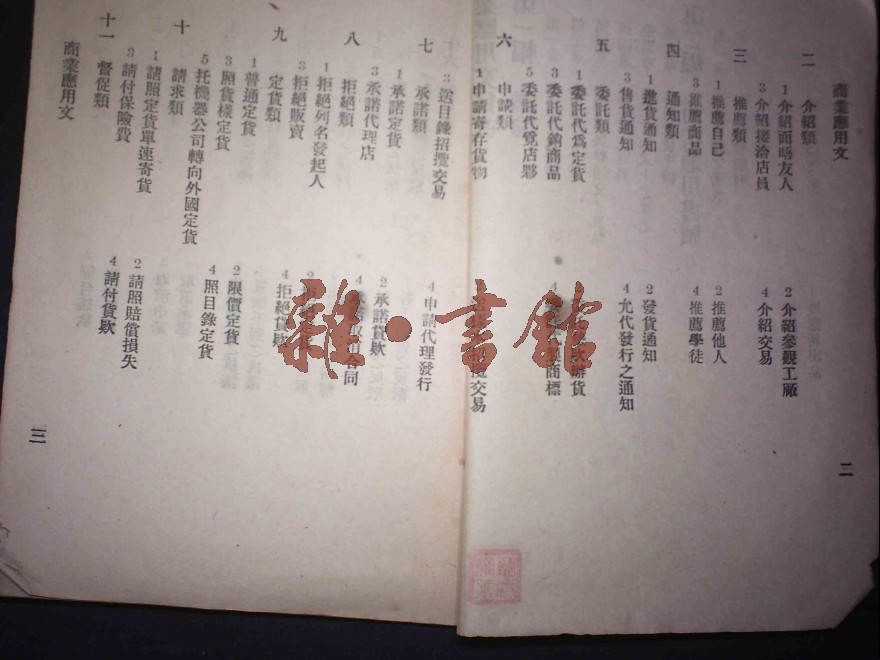 商業應用文
二 介紹類
1 介紹面晤友人
2 介紹參觀工廠
3 介紹接洽店員
4 介紹交易
三 推薦類
1 推薦自己
2 推薦他人
3 推薦商品
4 推薦學徒
四 通知類
1 進貨通知
2 發貨通知
3 售貨通知
4 允代發行之通知
五 委託類
1 委託代爲定貨
辦貨
3 委託代銷商品
4 商標
5 委託代覓店夥
六 申請類
1 申請寄存貨物
交易
二
3 送目錄招攬交易
4 申請代理發行
七 承諾類
1 承諾定貨
2 承諾貸款
3 承諾代理店
4 合同
八 拒絕類
1 拒絕列名發起人
3 拒絕販賣
4 拒絕貸款
九 定貨類
1 普通定貨
2 限價定貨
3 照貨樣定貨
4 照目錄定貨
5 托機器公司轉向外國定貨
十 請求類
1 請照定貨單速寄貨
2 請照賠償損失
3 請付保險費
4 請付貨款
十一 督促類
商業應用文
三
雜·書館